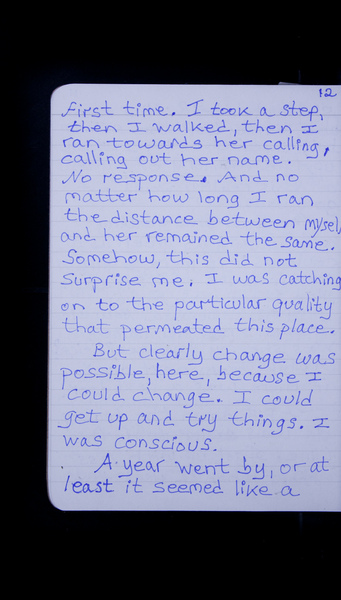 12
first time. I took a step,
then I walked, then I
ran towards her calling,
calling out her name.
No response. And no
matter how long I ran
the distance between myself
and her remained the same.
Somehow, this did not
surprise me. I was catching
on to the particular quality
that permeated this place.
But clearly change was
possible, here, because I
could change. I could
get up and try things. I
was conscious.
A year went by, or at
least it seemed like a